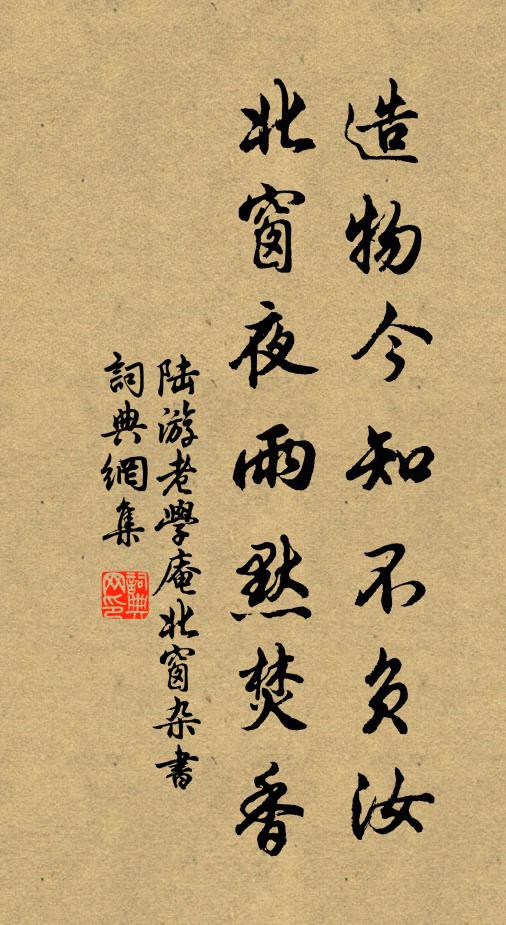 造物今知不负汝
北窗夜雨默焚香
陆游老學庵北窗杂書
詞典網集
詞典网印